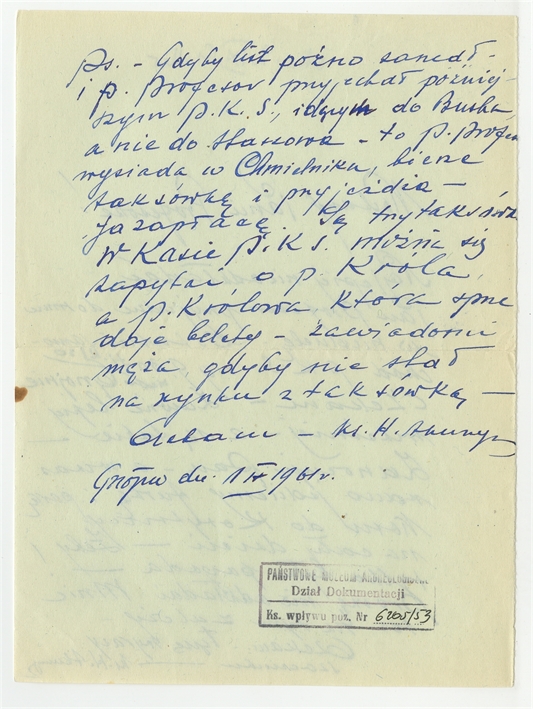 Ps. - Gdyby list późno zaszedł -
i p. Profesor przyjechał później-
szym P.K.S., idącym do Buska
a nie do Staszowa - to p. Profesor
wysiada w Chmielniku, bierze
taksówkę i przyjeżdża -
Ja zapłacę. Są trzy taksówki
W Kasie P.K.S. można się
zapytać o p. Króla,
a p. Królowa która sprze
daje bilety - zawiadomi
męża, gdyby nie stał
na rynku z taksówką -
Czekam - Ks. H.
Gnojno dn. 1 IV 1961 r.
PAŃSTWOWE MUZEUM ARCHEOLOGICZNE
Dział Dokumentacji
Ks. wpływu poz. Nr 6205/53